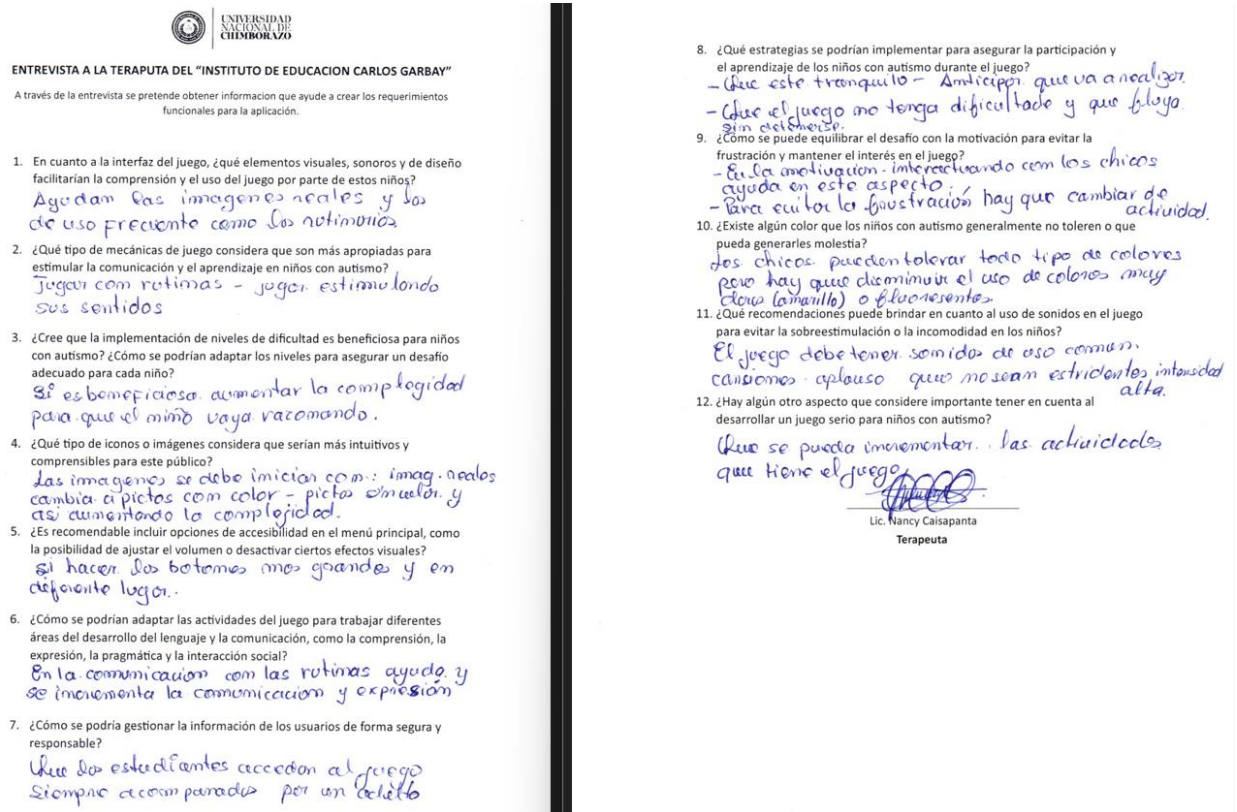 UNIVERSIDAD
NACIONAL DE
CHIMBORAZO
ENTREVISTA A LA TERAPUTA DEL “INSTITUTO DE EDUCACION CARLOS GARBAY”
A través de la entrevista se pretende obtener informacion que ayude a crear los requerimientos
funcionales para la aplicación.
1. En cuanto a la interfaz del juego, ¿qué elementos visuales, sonoros y de diseño
facilitarían la comprensión y el uso del juego por parte de estos niños?
Ayudan las imagenes reales y los
de uso frecuente como los rutinarios
2. ¿Qué tipo de mecánicas de juego considera que son más apropiadas para
estimular la comunicación y el aprendizaje en niños con autismo?
Jugar con rutinas - jugar estimulando
sus sentidos
3. ¿Cree que la implementación de niveles de dificultad es beneficiosa para niños
con autismo? ¿Cómo se podrían adaptar los niveles para asegurar un desafío
adecuado para cada niño?
Si es beneficioso aumentar la complegidad
para que el niño vaya razonando.
4. ¿Qué tipo de iconos o imágenes considera que serían más intuitivos y
comprensibles para este público?
Las imagenes se debe iniciar con: imag. reales
cambia a pictos con color - pictos sin color y
asi aumentando la complejidad.
5. ¿Es recomendable incluir opciones de accesibilidad en el menú principal, como
la posibilidad de ajustar el volumen o desactivar ciertos efectos visuales?
si hacer los botones mas grandes y en
diferente lugar.
6. ¿Cómo se podrían adaptar las actividades del juego para trabajar diferentes
áreas del desarrollo del lenguaje y la comunicación, como la comprensión, la
expresión, la pragmática y la interacción social?
En la comunicacion con las rutinas ayuda y
se incrementa la comunicacion y expresión
7. ¿Cómo se podría gestionar la información de los usuarios de forma segura y
responsable?
Que los estudiantes accedan al juego
siempre acompañados por un adulto
8. ¿Qué estrategias se podrían implementar para asegurar la participación y
el aprendizaje de los niños con autismo durante el juego?
- Que este tranquilo - Anticipar que va a realizar.
- Que el juego no tenga dificultade y que fluya
sin detenerse.
9. ¿Cómo se puede equilibrar el desafío con la motivación para evitar la
frustración y mantener el interés en el juego?
- En la motivacion - interactuando con los chicos
ayuda en este aspecto.
- Para evitar la frustración hay que cambiar de
actividad.
10. ¿Existe algún color que los niños con autismo generalmente no toleren o que
pueda generarles molestia?
Los chicos pueden tolerar todo tipo de colores
pero hay que disminuir el uso de colores muy
claros (amarillo) o fluoresentes.
11. ¿Qué recomendaciones puede brindar en cuanto al uso de sonidos en el juego
para evitar la sobreestimulación o la incomodidad en los niños?
El juego debe tener sonidos de uso comun.
cansiones - aplauso que no sean estridentes intensidad
alta.
12. ¿Hay algún otro aspecto que considere importante tener en cuenta al
desarrollar un juego serio para niños con autismo?
Que se pueda incrementar las actividades
que tiene el juego
Lic. Nancy Caisapanta
Terapeuta